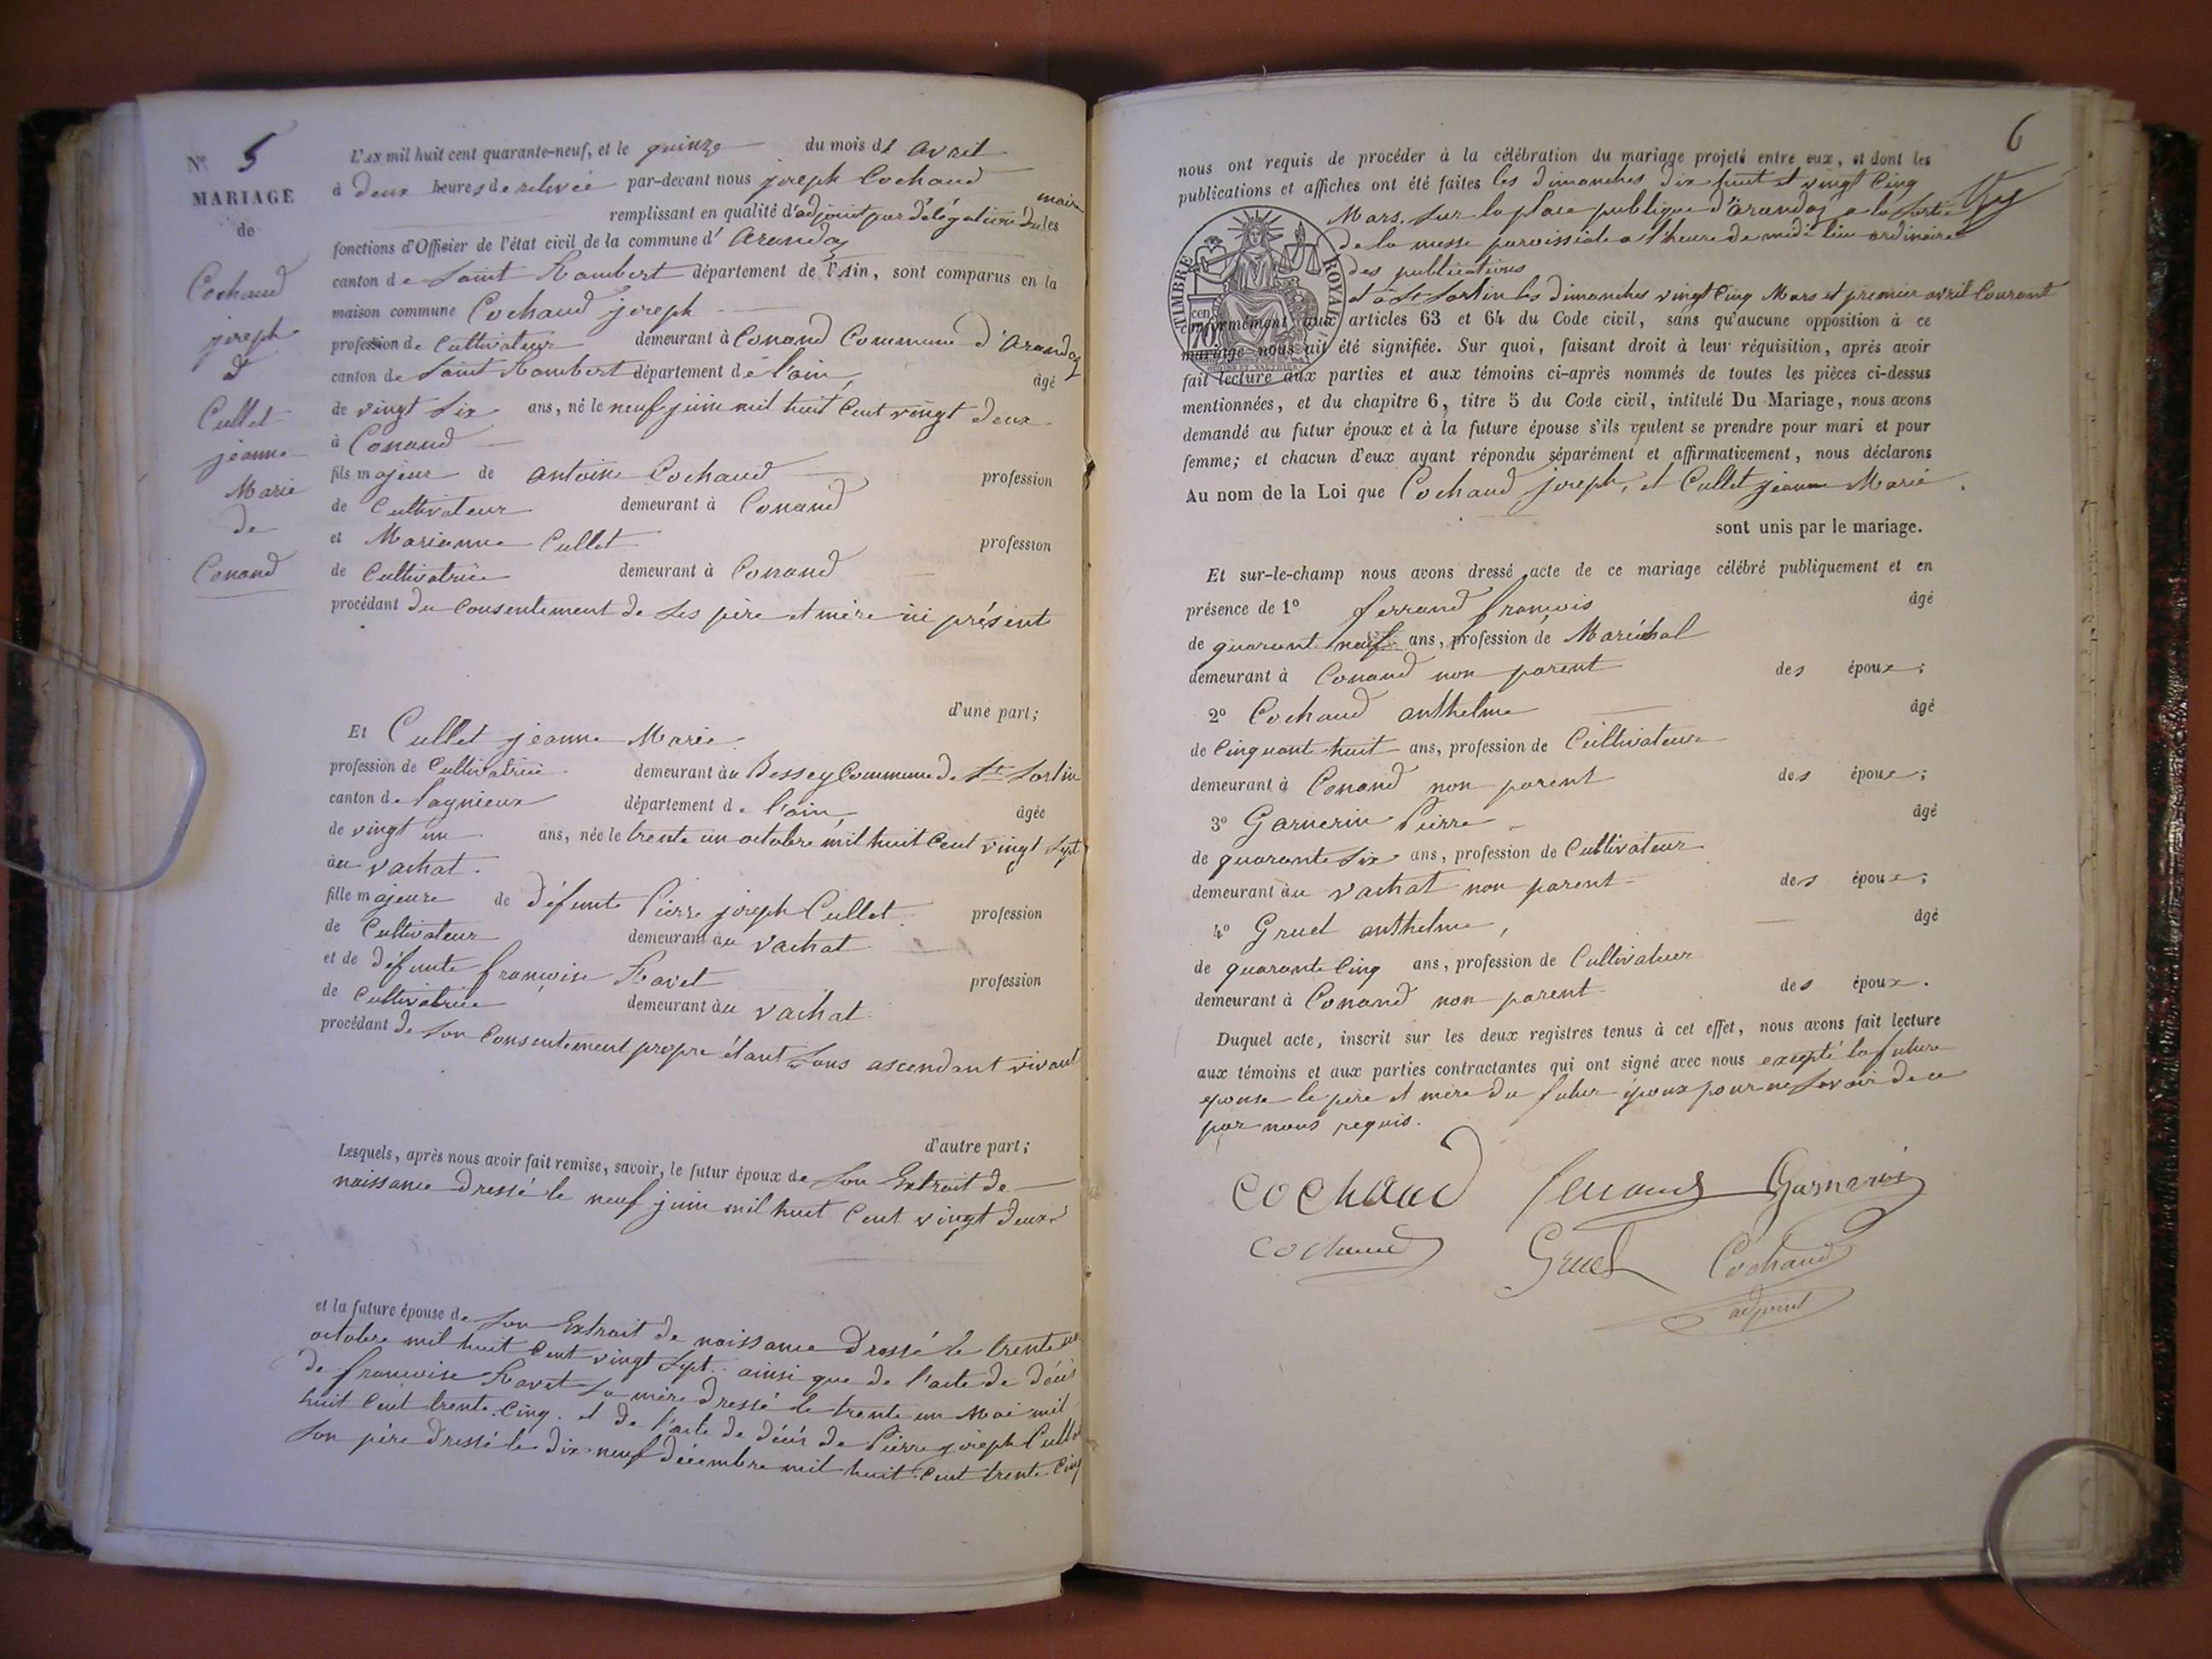 N.º 5
MARIAGE
de
Cochaud
joseph
et
Cullet
jeanne
Marie
de
Conand
L'AN mil huit cent quarante-neuf, et le quinze du mois de avril
à deux heures de relevée par-devant nous joseph Cochaud
remplissant en qualité d'adjoint par délégation du maire les
fonctions d'Officier de l'état civil de la commune d' arandas
canton de Saint Rambert département de l'Ain, sont comparus en la
maison commune Cochaud joseph
profession de Cultivateur demeurant à Conand Commune d'arandas
canton de Saint Rambert département de l'ain, âgé
de vingt six ans, né le neuf juin mil huit Cent vingt deux
à Conand
fils majeur de antoine Cochaud profession
de Cultivateur demeurant à Conand
et Marianne Cullet profession
de Cultivatrice demeurant à Conand
procédant du Consentement de ses père et mère ici présents
d'une part;
Et Cullet jeanne Marie
profession de Cultivatrice demeurant au Bessey Commune de St Sorlin
canton de lagnieux département de l'ain, âgée
de vingt un ans, née le trente un octobre mil huit Cent vingt sept
au vachat.
fille majeure de défunte Pierre joseph Cullet profession
de Cultivateur demeurant au vachat
et de défunte françoise Ravet profession
de Cultivatrice demeurant au vachat
procédant de son Consentement propre étant sans ascendant vivant
d'autre part;
Lesquels, après nous avoir fait remise, savoir, le futur époux de son Extrait de
naissance dressé le neuf juin mil huit Cent vingt deux
et la future épouse de son Extrait de naissance dressé le trente un
octobre mil huit Cent vingt sept. ainsi que de l'acte de décès
de françoise Ravet sa mère dressé le trente un Mai mil
huit Cent trente Cinq. et de l'acte de décès de Pierre joseph Cullet
son père dressé le dix neuf décembre mil huit Cent trente Cinq
6
nous ont requis de procéder à la célébration du mariage projeté entre eux, et dont les
publications et affiches ont été faites les dimanches dix huit et vingt Cinq
Mars, sur la place publique d'arandas a la sortie
de la messe paroissiale a l'heure de midi lieu ordinaire
des publications
et à St Sorlin les dimanches vingt Cinq Mars et premier avril Courant
TIMBRE ROYAL
70 cen
conformément aux articles 63 et 64 du Code civil, sans qu'aucune opposition à ce
mariage nous ait été signifiée. Sur quoi, faisant droit à leur réquisition, après avoir
fait lecture aux parties et aux témoins ci-après nommés de toutes les pièces ci-dessus
mentionnées, et du chapitre 6, titre 5 du Code civil, intitulé Du Mariage, nous avons
demandé au futur époux et à la future épouse s'ils veulent se prendre pour mari et pour
femme; et chacun d'eux ayant répondu séparément et affirmativement, nous déclarons
Au nom de la Loi que Cochaud joseph, et Cullet jeanne Marie.
sont unis par le mariage.
Et sur-le-champ nous avons dressé acte de ce mariage célébré publiquement et en
présence de 1º ferrand françois âgé
de quarant neuf ans, profession de Maréchal
demeurant à Conand non parent des époux;
2º Cochaud anthelme âgé
de Cinquant huit ans, profession de Cultivateur
demeurant à Conand non parent des époux;
3º Garnerin Pierre âgé
de quarante six ans, profession de Cultivateur
demeurant au vachat non parent des époux;
4º Gruel anthelme, âgé
de quarante Cinq ans, profession de Cultivateur
demeurant à Conand non parent des époux.
Duquel acte, inscrit sur les deux registres tenus à cet effet, nous avons fait lecture
aux témoins et aux parties contractantes qui ont signé avec nous excepté la future
epouse le père et mère du futur époux pour ne savoir de ce
par nous requis.
cochaud ferrand Garnerin
cochaud Gruel Cochaud
adjoint